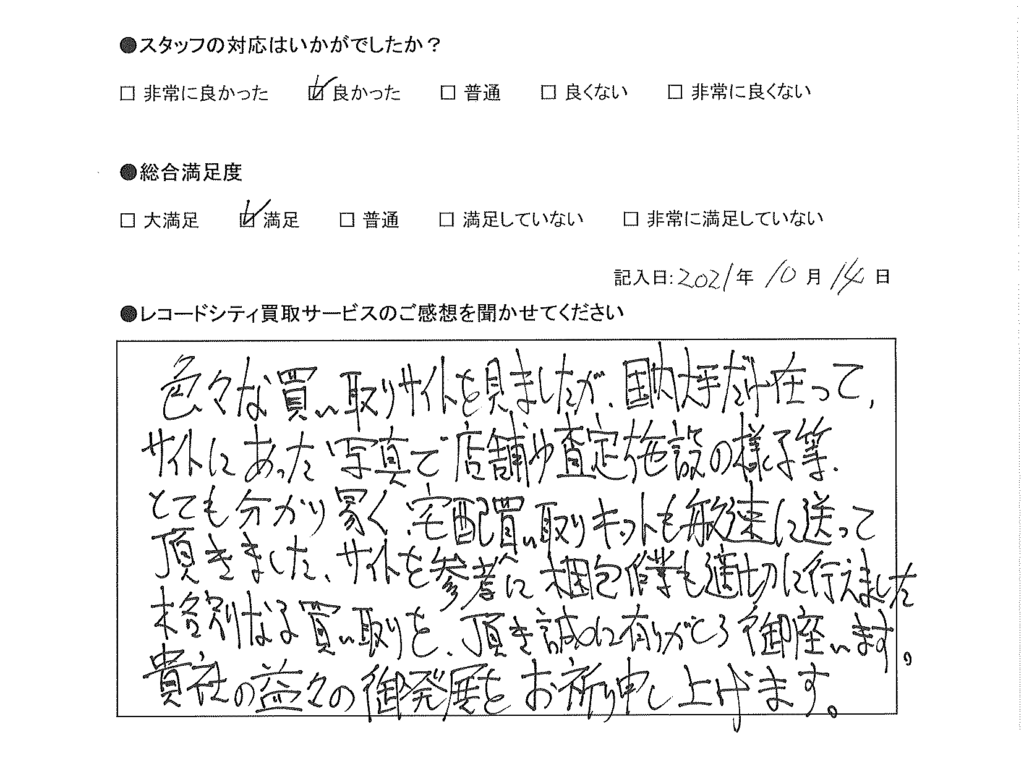 ●スタッフの対応はいかがでしたか？
□ 非常に良かった ☑ 良かった □ 普通 □ 良くない □ 非常に良くない
●総合満足度
□ 大満足 ☑ 満足 □ 普通 □ 満足していない □ 非常に満足していない
記入日:2021年 10月 14日
●レコードシティ買取サービスのご感想を聞かせてください
色々な買い取りサイトを見ましたが、国内大手だけ在って、
サイトにあった写真で店舗や査定施設の様子等、
とても分かり易く、宅配買い取りキットも敏速に送って
頂きました、サイトを参考に梱包作業も適切に行えました
格別なる買い取りを、頂き誠に有りがとう御座います。
貴社の益々の御発展をお祈り申し上げます。